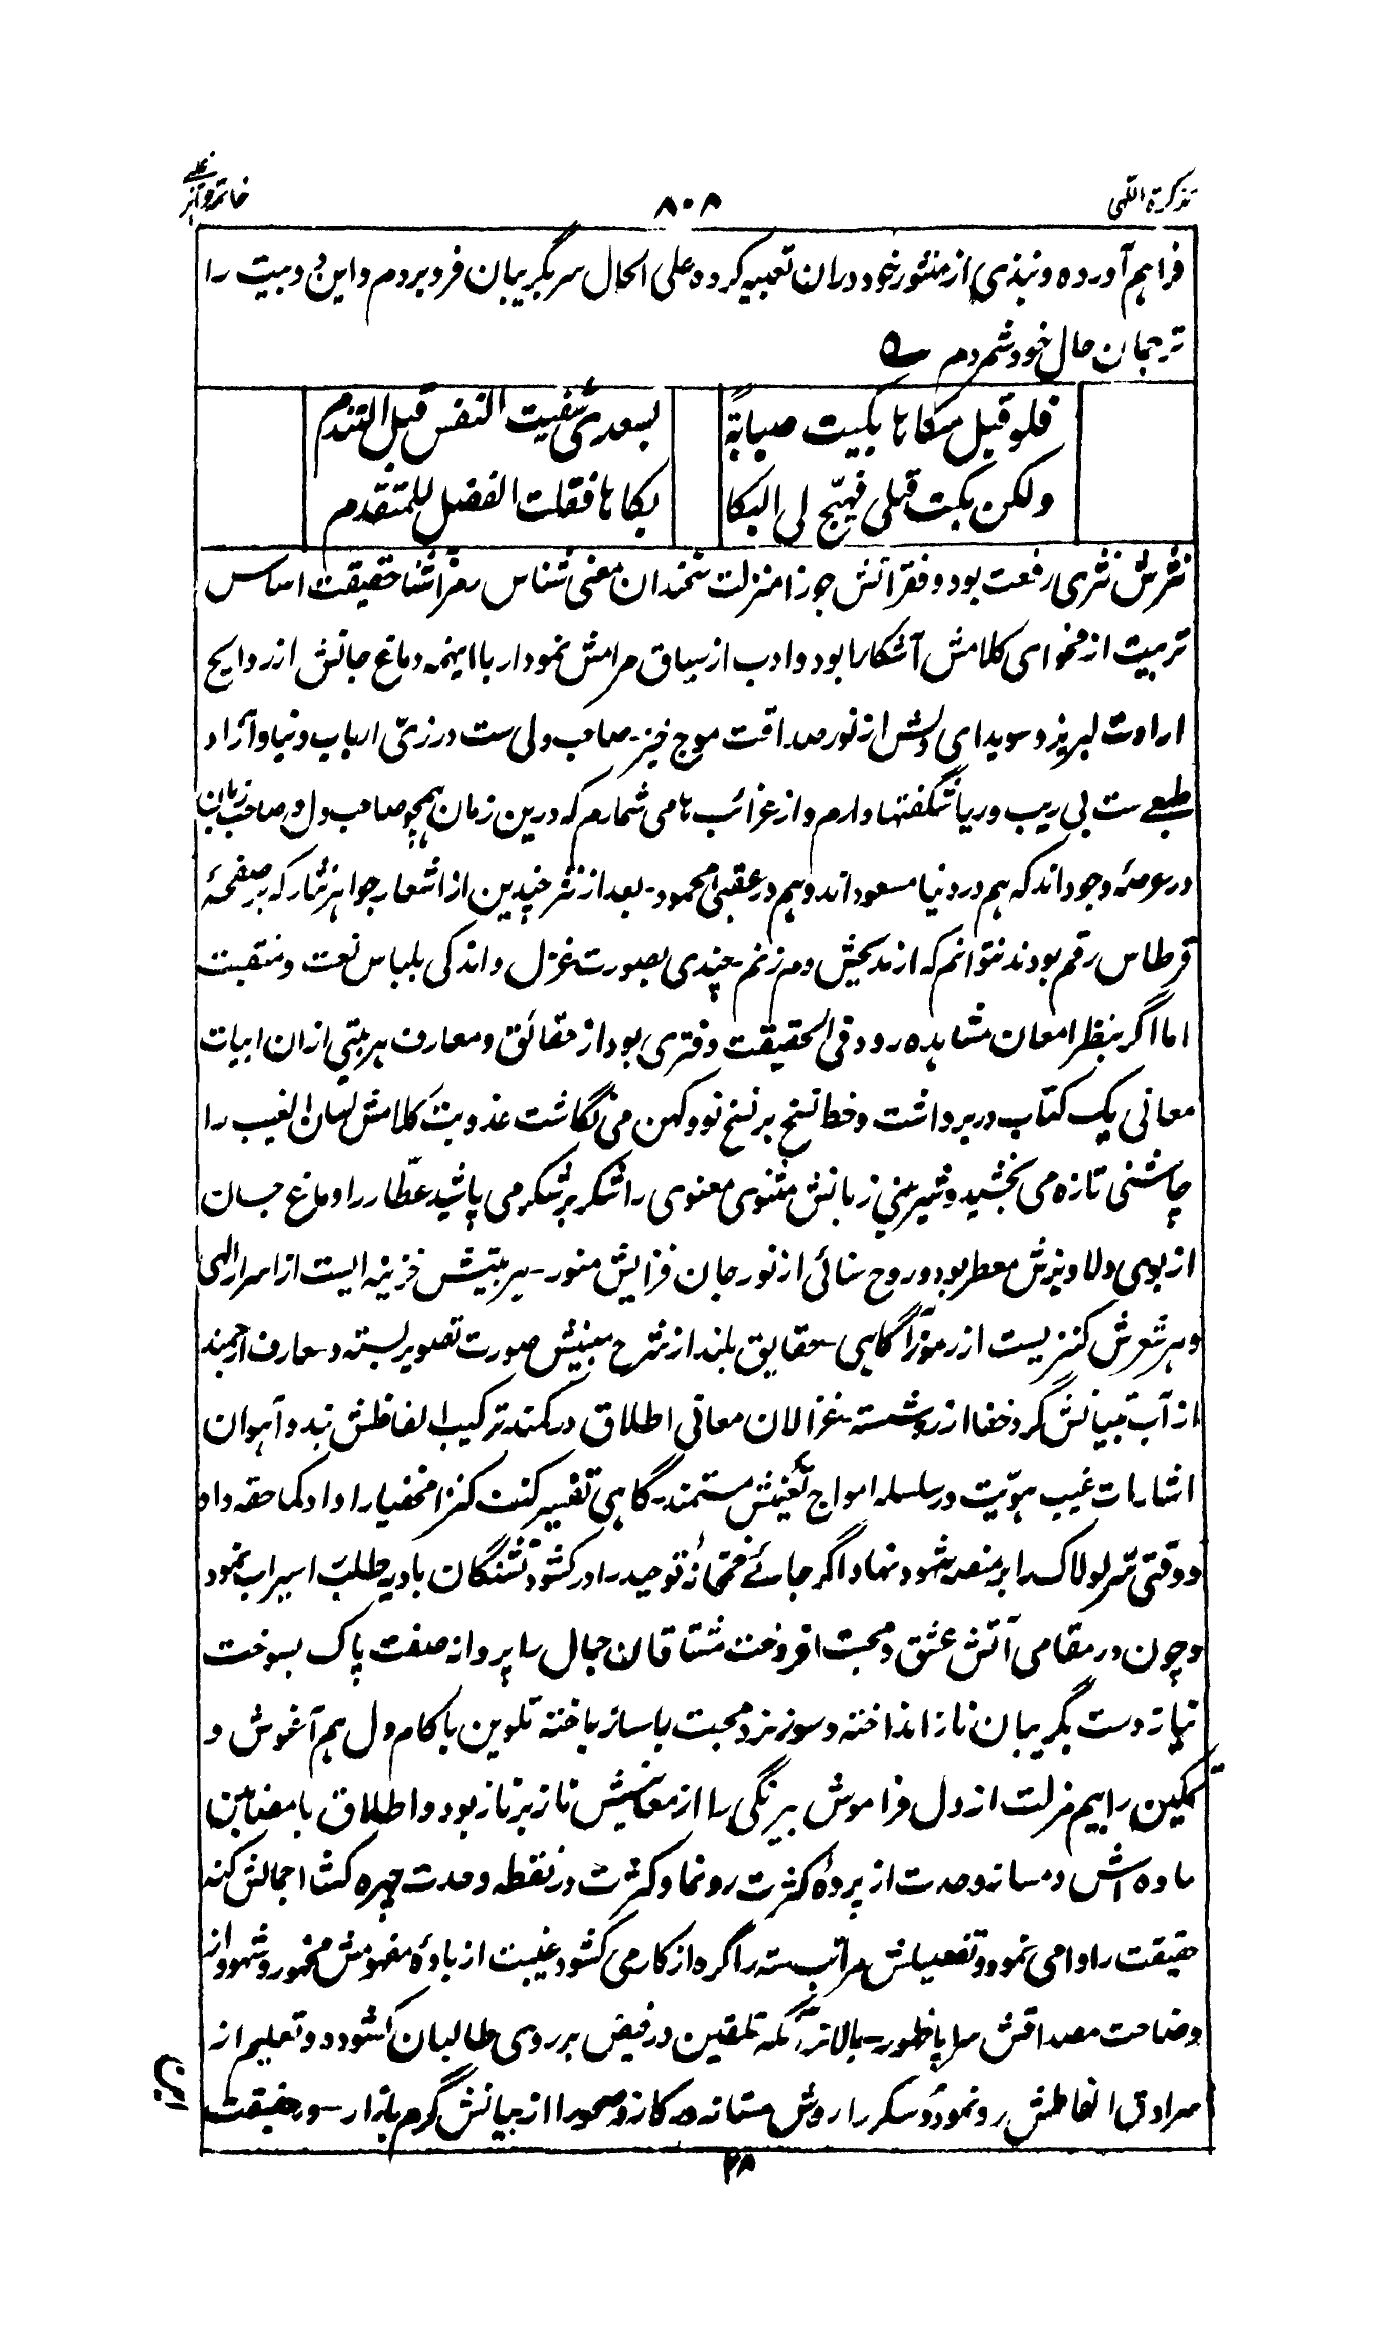 تذکرة اللهی
۸۰۸
خاتمه
فراہم آورده و نبذی از منثور خود دران تعبیه کرده علی الحال سر بگریبان فرو بردم و این دو بیت را
ترجمان حال خود شمردم
فلو قبل مبکاہا بکیت صبابة بسعدی شفیت النفس قبل التندم
ولکن بکت قبلی فهیّج لی البکا بکاہا فقلت الفضل للمتقدم
نثرش نثری رفعت بود و فقراتش جوزا منزلت سخندان معنی شناس رمز آشنا حقیقت اساس
تربیت از فحوای کلامش آشکارا بود و ادب از سیاق مرامش نمودار با اینہمه دماغ جانش از روایح
ارادت لبریز و سویدای دلش از نور صداقت موج خیز - صاحب دلی ست در زیّ ارباب دنیا و آزاد
طبعے ست بی ریب و ریا شگفتہا دارم و از غرائب ہا می شمارم که درین زمان ہمچو صاحب دل و صاحب زبان
در عرصۂ وجود اند که ہم در دنیا مسعود اند و ہم در عقبی محمود - بعد از نثر چندین از اشعار جواہر نثار که بر صفحۂ
قرطاس رقم بودند نتوانم که از مدحش دم زنم - چندی بصورت غزل و اندکی بلباس نعت و منقبت
اما اگر بنظر امعان مشاہده رود فی الحقیقت دفتری بود از حقائق و معارف ہر بیتی ازان ابیات
معانی یک کتاب در بر داشت و خط نسخ بر نسخ نو و کہن می نگاشت عذوبت کلامش لسان الغیب را
چاشنی تازه می بخشید و شیرینی زبانش مثنوی معنوی را شکر بر شکر می پاشید عطّار را دماغ جان
از بوی دلاویزش معطر بود و روح سنائی از نور جان فزایش منور - ہر بیتش خزینه ایست از اسرار الہی
و ہر شعرش کنزیست از رموز آگاہی - حقایق بلند از شرح مبنیش صورت تصویر بسته و معارف ارجمند
از آب بیانش گرد خفا از رو شسته - غزالان معانی اطلاق در کمند ترکیب الفاظش بند و آہوان
اشارات غیب ہویّت در سلسله امواج تعینش مستمند - گاہی تفسیر کنت کنزا مخفیا را داد کما حقه داد
و وقتی سرّ لولاک را بر منصه شہود نہاد اگر جائے خمخانۂ توحید را در کشود تشنگان بادیه طلب را سیراب نمود
و چون در مقامی آتش عشق و محبت افروخت مشتاقان جمال را پروانه صفت پاک بسوخت
نیاز دست بگریبان ناز انداخته و سوز نرد محبت با ساز باخته تلوین با کام دل ہم آغوش و
تمکین را بیم عزلت از دل فراموش بیرنگی را از معانیش ناز بر ناز بود و اطلاق با مضامین
ساده اش دمساز وحدت از پردۂ کثرت رونما و کثرت در نقطه وحدت چہره کشا اجمالش کنه
حقیقت را وامی نمود و تفصیلش مراتب سته را گره از کار می کشود غیبت از بادۂ مفہومش مخمور و شہود از
وضاحت مصداقش سراپا ظہور - بالاتر آنکه تلقین در فیض بر روی طالبان کشوده و تعلیم از
سرادق الفاظش رو نموده سکر را روش مستانه در کار و صحو را از بیانش گرم بازار - و حقیقت
این
۲۸